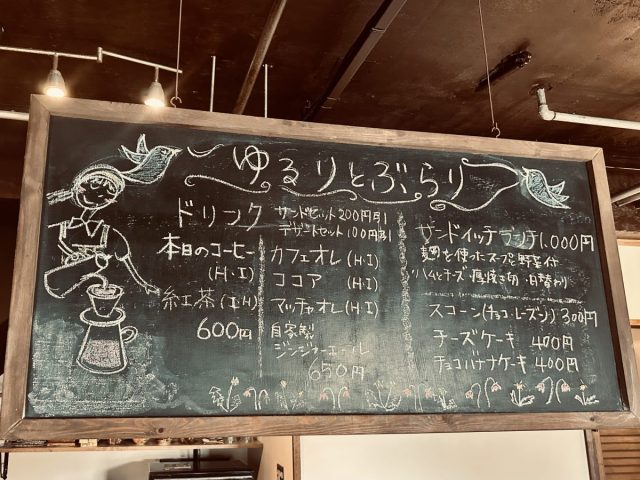 ゆるりとぶらり
ドリンク
サンドセット200円引
デザートセット100円引
本日のコーヒー
(H・I)
紅茶(I・H)
600円
カフェオレ(H・I)
ココア (H・I)
マッチャオレ(H・I)
自家製
ジンジャーエール
650円
サンドイッチランチ1,000円
麹を使ったスープと野菜付
ハムチーズ・厚焼き卵・日替わり
スコーン(チョコ・レーズン) 300円
チーズケーキ 400円
チョコバナナケーキ 400円